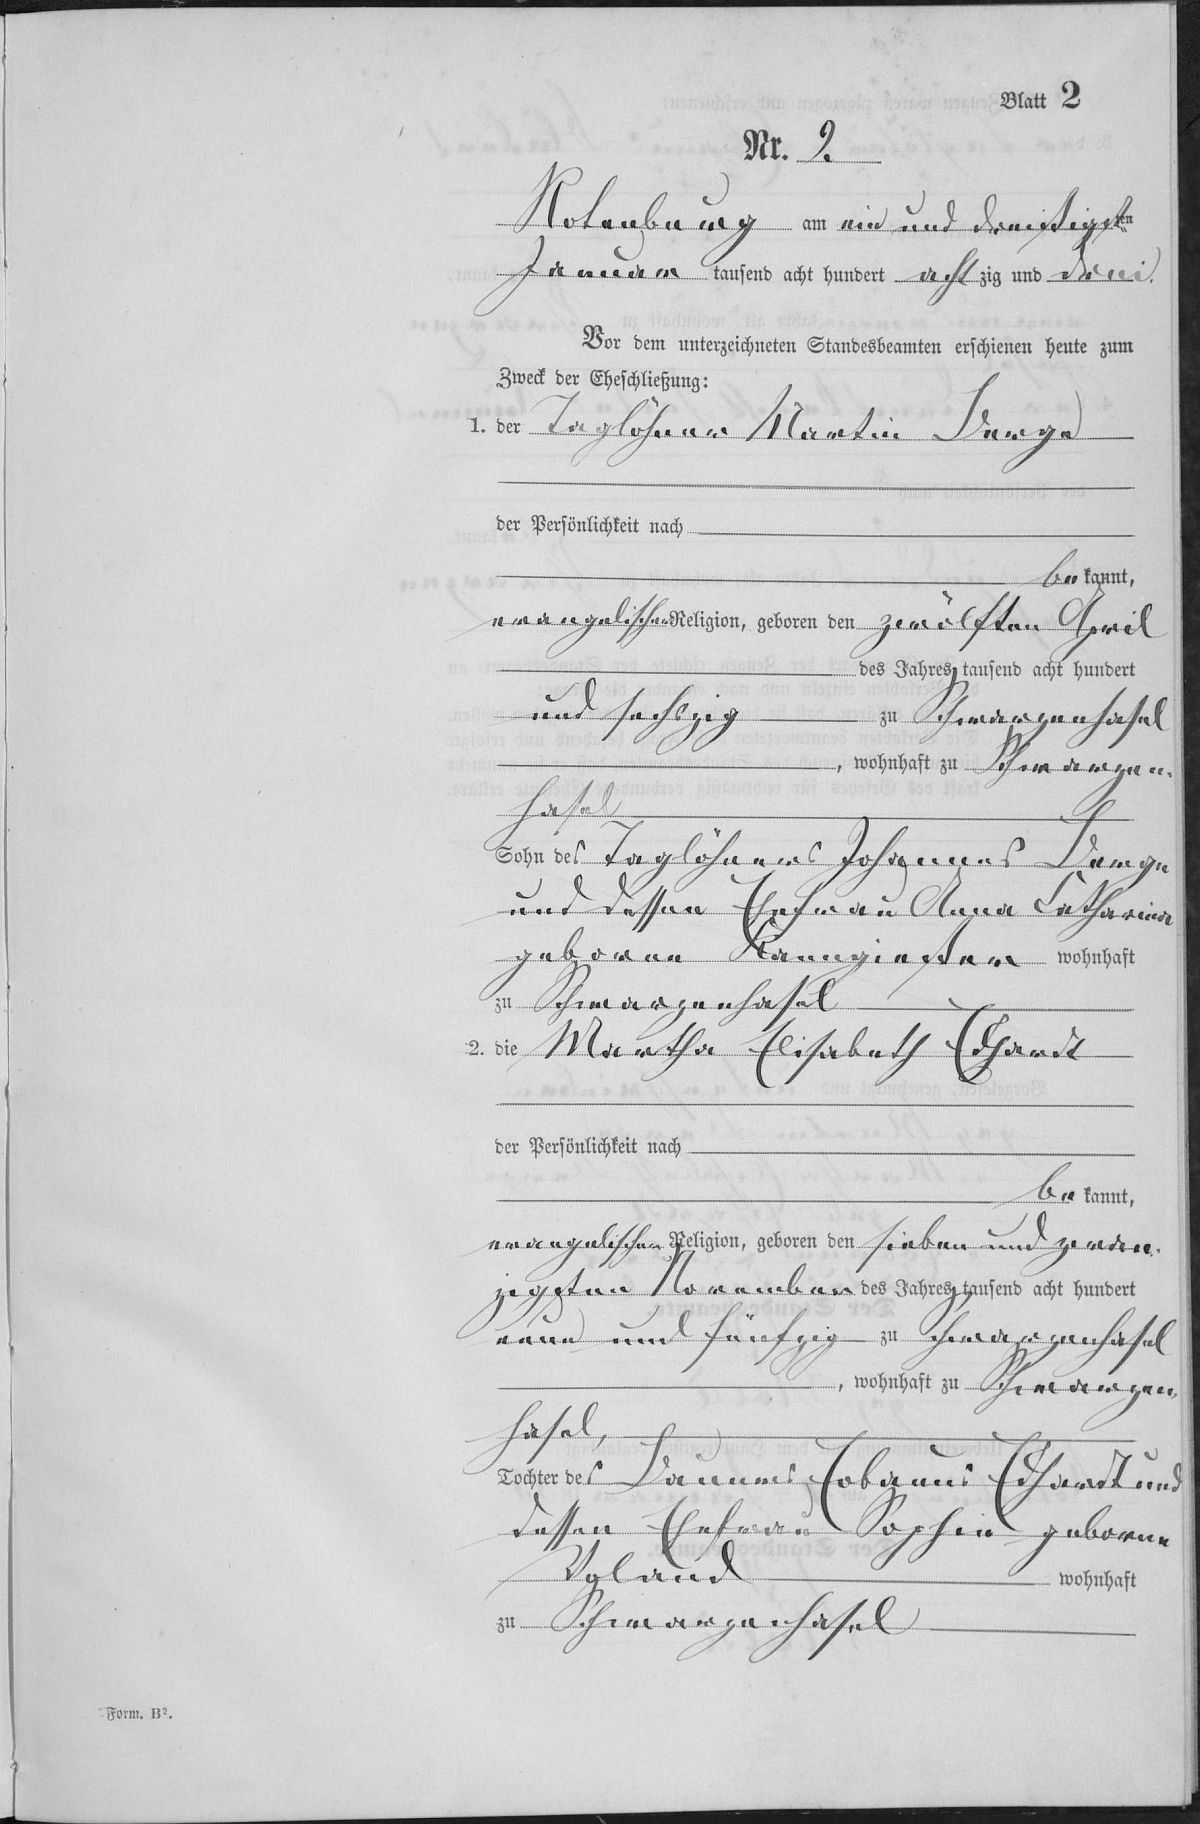 Blatt 2
Nr. 2.
Rotenburg am ein und dreißigsten
Januar tausend acht hundert achtzig und drei.
Vor dem unterzeichneten Standesbeamten erschienen heute zum
Zweck der Eheschließung:
1. der Taglöhner Martin Berge
der Persönlichkeit nach
bekannt,
evangelischer Religion, geboren den zwölften April
des Jahres tausend acht hundert
und sechszig zu Schwarzenhasel
, wohnhaft zu Schwarzen-
hasel
Sohn des Taglöhners Johannes Berge
und dessen Ehefrau Anna Catharina
geborne Kanngießer wohnhaft
zu Schwarzenhasel
2. die Martha Elisabeth Eckhardt
der Persönlichkeit nach
bekannt,
evangelischer Religion, geboren den sieben und zwan-
zigsten November des Jahres tausend acht hundert
neun und fünfzig zu Schwarzenhasel
, wohnhaft zu Schwarzen-
hasel,
Tochter des Bauers Eobanus Eckhardt und
dessen Ehefrau Sophie geborne
wohnhaft
zu Schwarzenhasel
Form. B².